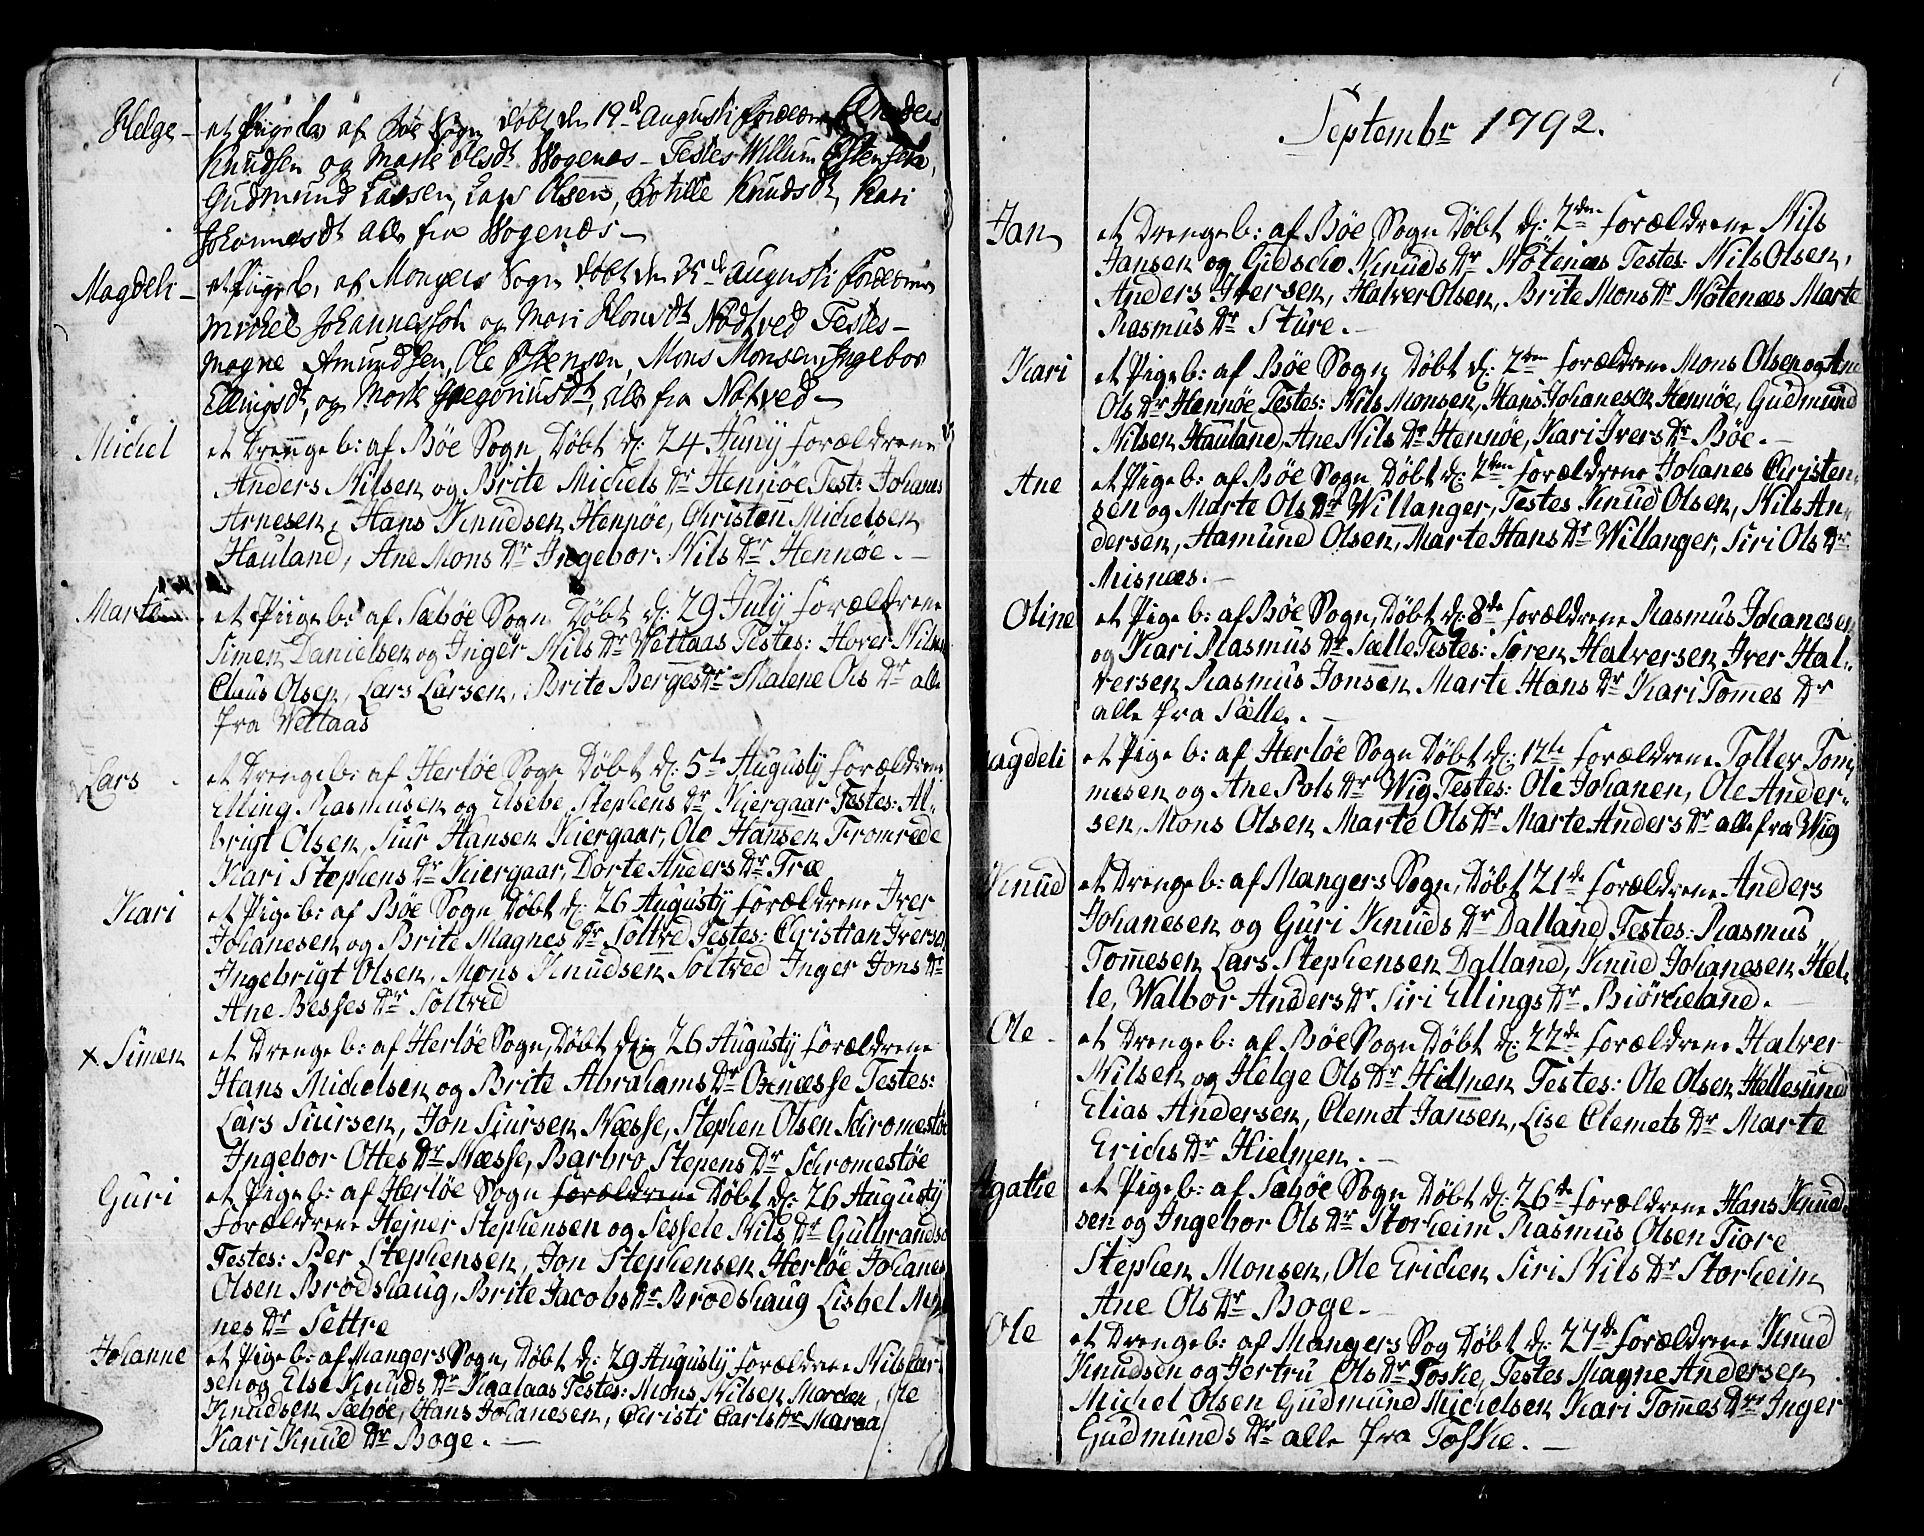 Helge - et Pigeb af Bøe Sogn Døbt den 19de Augusti Forældrene Anders
Knudsen og Marte Olsdr Wogenes - Testes Willum Østensen,
Gudmund Larsen, Lars Olsen, Botille Knudsdr, Kari
Johannesdr alle fra Wogenæs -
Magdeli - et Pigeb, af Mangers Sogn døbt den 25de Augusti Forældrene
Michel Johannessøn og Mari Monsdr Nødtved Testes -
Magne Amundsen, Ole Østensen, Mons Monsen, Ingebor
Ellingsdr, og Marte Gregoriusdr, alle fra Nøtved -
Michel et Drengeb: af Bøe Sogn Døbt d: 24 Junij forældrene
Anders Nilsen og Brite Michels Dr Hennøe Test: Johanes
Arnesen, Hans Knudsen Hennøe, Christen Michelsen
Hauland, Ane Mons Dr Ingebor Nils Dr Hennøe. -
Marte et Piigeb: af Sæbøe Sogn Døbt d: 29 Julij forældrene
Simen Danielsen og Inger Nils Dr Wettaas Testes: Hover Nilsen
Claus Olsen, Lars Larsen, Brite Berges Dr Malene Ols Dr alle
fra Wettaas
Lars - et Drengeb: af Herløe Sogn Døbt d: 5te Augusty forældrene
Elling Rasmusen og Elsebe Stephens Dr Kiergaar Testes: Al-
brigt Olsen, Siur Hansen Kiergaar, Ole Hansen Fromrede
Kari Stephens Dr Kiergaar, Dorte Anders Dr Træ
Kari et Pigeb: af Bøe Sogn Døbt d: 26 Augusty forældrene Iver
Johanesen og Brite Magnes Dr Soltved Testes: Christian Iversen
Ingebrigt Olsen, Mons Knudsen Soltved Inger Jons Dr
Ane Besses Dr Soltved
x Simen et Drengeb: af Herløe Sogn, Døbt den 26 Augusty forældrene
Hans Michelsen og Brite Abrahams Dr Oxnæsse Testes:
Lars Siursen, Jon Siursen Næsse, Stephen Olsen Skromestøe
Ingebor Ottes Dr Næsse, Barbro Stepens Dr Skromestøe
Guri et Pigeb: af Herløe Sogn forældrene Døbt d: 26 Augusty
Forældrene Hejner Stephensen og Sessele Nils Dr Gulbrands
Testes: Per Stephensen, Jon Stephensen Herløe Johanes
Olsen Brodshaug, Brite Jacobs Dr Brodshaug Lisbet Mag
nes Dr Settre
Johanne et Pigeb: af Mangers Sogn, Døbt d: 29 Augusty forældrene Nils Lar-
sen og Else Knuds Dr Kaalaas Testes: Mons Nilsen Marøen, Ole
Knudsen Sæbøe, Hans Johanesen, Christi Carls Dr Maraa
Kari Knud Dr Boge. -
Septembr 1792.
Jan et Drengeb: af Bøe Sogn Døbt d: 2den forældrene Nils
Jansen og Gidscho Knuds Dr Nøtenæs Testes: Nils Olsen,
Anders Iversen, Halver Olsen, Brite Mons Dr Nøtenæs Marte
Rasmus Dr Sture. -
Kari et Pigeb: af Bøe Sogn Døbt d: 2den forældrene Mons Olsen og Ane
Ols Dr Hennøe Testes: Nils Monsen, Hans Johanesen Hennøe, Gudmund
Nilsen Hauland, Ane Nils Dr Hennøe, Kari Ivers Dr Bøe. -
Ane et Pigeb: af Bøe Sogn Døbt d: 2den forældrene Johanes Christen-
sen og Marte Ols Dr Willanger, Testes Knud Olsen, Nils An-
dersen, Hamund Olsen, Marte Hans Dr Willanger, Siri Ols Dr
Misnæs. -
Oline et Pigeb: af Bøe Sogn, Døbt d: 8de forældrene Rasmus Johanesen
og Kari Rasmus Dr Sælle Testes: Soren Halversen Iver Hal-
versen Rasmus Jonsen Marte Hans Dr Kari Tomes Dr
alle fra Sælle. -
agdeli et Pigeb: af Herløe Sogn Døbt d: 12te forældrene Toller Tom-
mesen og Ane Pols Dr Wig Testes: Ole Johanen, Ole Ander-
sen, Mons Olsen Marte Ols Dr Marte Anders Dr alle fra Wig
Knud et Drengeb: af Mangers Sogn, Døbt 21de forældrene Anders
Johanesen og Guri Knuds Dr Dalland Testes: Rasmus
Tomesen Lars Stephensen Dalland, Knud Johanesen Hel-
le, Walbor Anders Dr Siri Ellings Dr Biørcheland. -
Ole - et Drengeb: af Bøe Sogn Døbt d: 22de forældrene Halver
Nilsen og Helge Ols Dr Hilmen Testes: Ole Olsen Hellesund
Elias Andersen, Clemet Jansen, Lise Clemets Dr Marte
Erichs Dr Hielmen. -
Agathe et Pigeb: af Sæbøe Sogn Døbt d: 26de forældrene Hans Knud-
sen og Ingebor Ols Dr Storheim Rasmus Olsen Fiore
Stephen Monsen, Ole Erichen Siri Nils Dr Storheim
Ane Ols Dr Boge. -
Ole et Drengeb: af Mangers Sog Døbt d: 27de forældrene Knud
Knudsen og Jertru Ols Dr Toske, Testes Magne Andersen
Michel Olsen Gudmund Michelsen Kari Tomes Dr Inger
Gudmunds Dr alle fra Toske. -